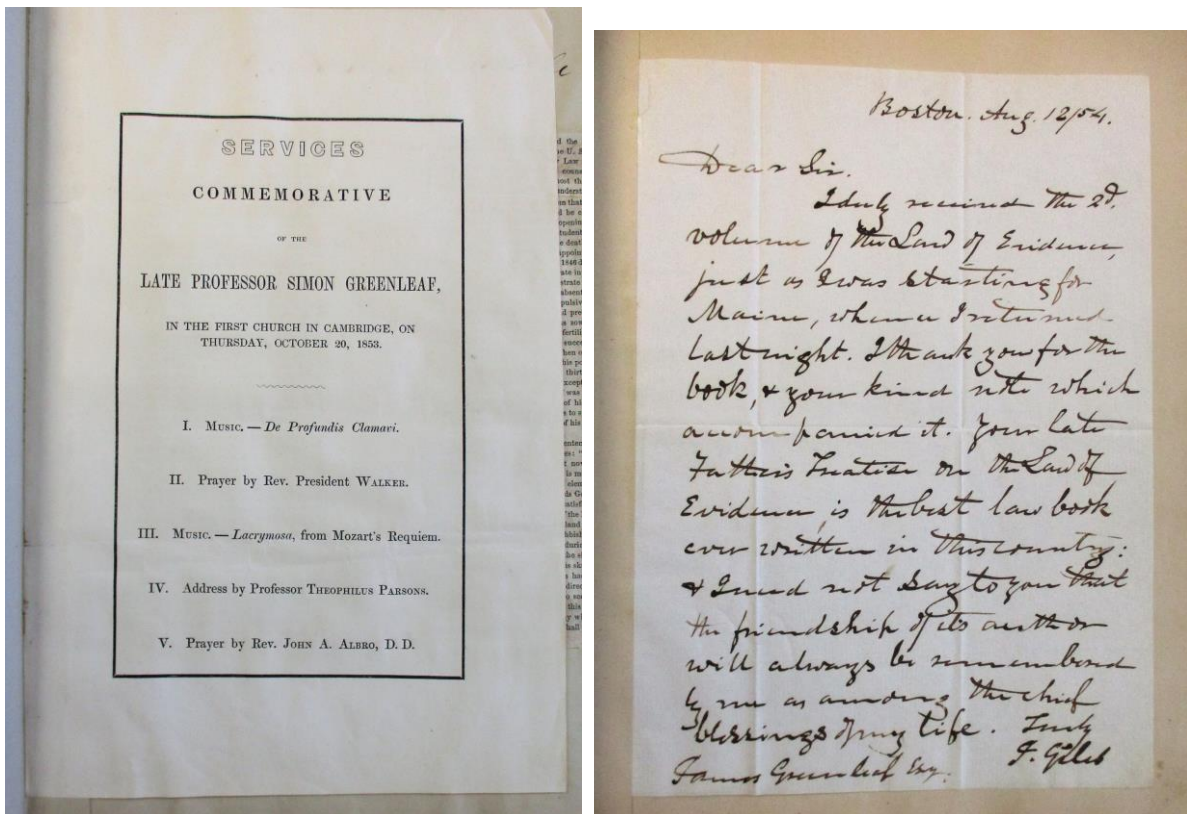 SERVICES
COMMEMORATIVE
OF THE
LATE PROFESSOR SIMON GREENLEAF,
IN THE FIRST CHURCH IN CAMBRIDGE, ON
THURSDAY, OCTOBER 20, 1853.
I. Music. — De Profundis Clamavi.
II. Prayer by Rev. President Walker.
III. Music. — Lacrymosa, from Mozart's Requiem.
IV. Address by Professor Theophilus Parsons.
V. Prayer by Rev. John A. Albro, D. D.
Boston. Aug. 12/54.
Dear Sir.
I duly received the 2d.
volume of the Law of Evidence,
just as I was starting for
Maine, whence I returned
last night. I thank you for the
book, & your kind note which
accompanied it. Your late
Father's Treatise on the Law of
Evidence, is the best law book
ever written in this country:
& I need not say to you that
the friendship of its author
will always be remembered
by me as among the chief
blessings of my life. Truly
James Greenleaf Esq.